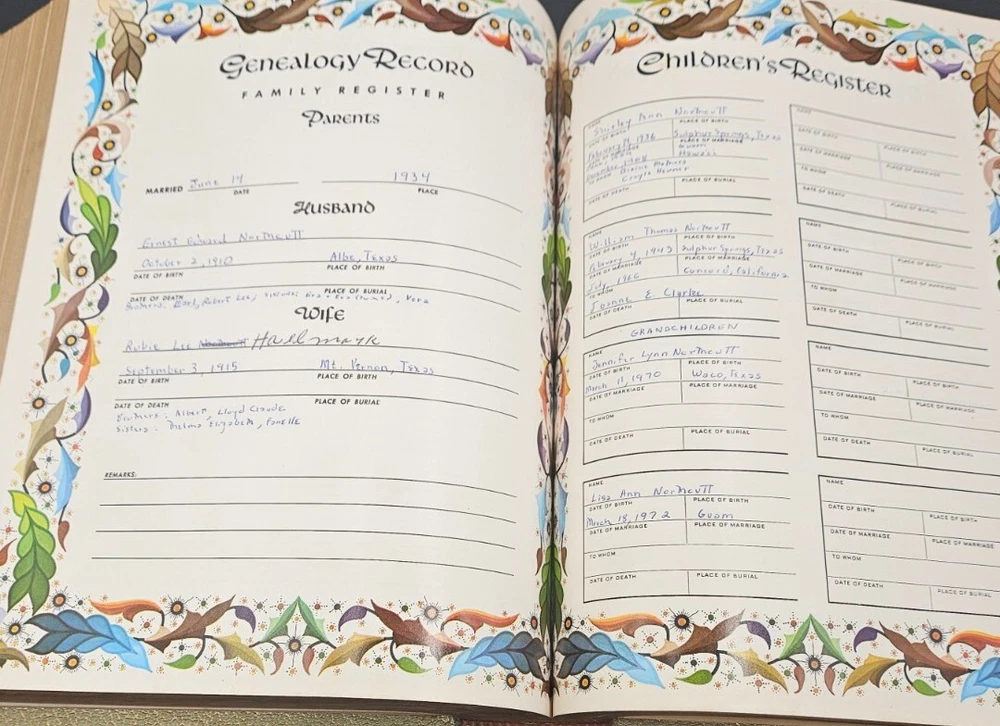 Genealogy Record
FAMILY REGISTER
Parents
MARRIED June 14 1934
DATE PLACE
Husband
Ernest Edward Northcutt
October 2, 1910 Alba, Texas
DATE OF BIRTH PLACE OF BIRTH
DATE OF DEATH PLACE OF BURIAL
Brothers: Earl, Robert Lee; Sisters: Vera
Wife
Rubie Lee Northcutt Hallmark
September 3, 1915 Mt. Vernon, Texas
DATE OF BIRTH PLACE OF BIRTH
DATE OF DEATH PLACE OF BURIAL
Brothers: Albert, Lloyd Claude
Sisters: Thelma Elizabeth,
REMARKS:
Children's Register
NAME Shirley Ann Northcutt
DATE OF BIRTH PLACE OF BIRTH
February 14, 1936 Sulphur Springs, Texas
DATE OF MARRIAGE PLACE OF MARRIAGE
December, Hawaii
TO WHOM
DATE OF DEATH PLACE OF BURIAL
NAME
William Thomas Northcutt
DATE OF BIRTH PLACE OF BIRTH
February 4, 1943 Sulphur Springs, Texas
DATE OF MARRIAGE PLACE OF MARRIAGE
July, 1966 Concord, California
TO WHOM
Joanne E Clarke
DATE OF DEATH PLACE OF BURIAL
GRANDCHILDREN
NAME
Jennifer Lynn Northcutt
DATE OF BIRTH PLACE OF BIRTH
March 11, 1970 Waco, Texas
DATE OF MARRIAGE PLACE OF MARRIAGE
TO WHOM
DATE OF DEATH PLACE OF BURIAL
NAME
Lisa Ann Northcutt
DATE OF BIRTH PLACE OF BIRTH
March 18, 1972 Guam
DATE OF MARRIAGE PLACE OF MARRIAGE
TO WHOM
DATE OF DEATH PLACE OF BURIAL
NAME
DATE OF BIRTH PLACE OF BIRTH
DATE OF MARRIAGE PLACE OF MARRIAGE
TO WHOM
DATE OF DEATH PLACE OF BURIAL
NAME
DATE OF BIRTH PLACE OF BIRTH
DATE OF MARRIAGE PLACE OF MARRIAGE
TO WHOM
DATE OF DEATH PLACE OF BURIAL
NAME
DATE OF BIRTH PLACE OF BIRTH
DATE OF MARRIAGE PLACE OF MARRIAGE
TO WHOM
DATE OF DEATH PLACE OF BURIAL
NAME
DATE OF BIRTH PLACE OF BIRTH
DATE OF MARRIAGE PLACE OF MARRIAGE
TO WHOM
DATE OF DEATH PLACE OF BURIAL